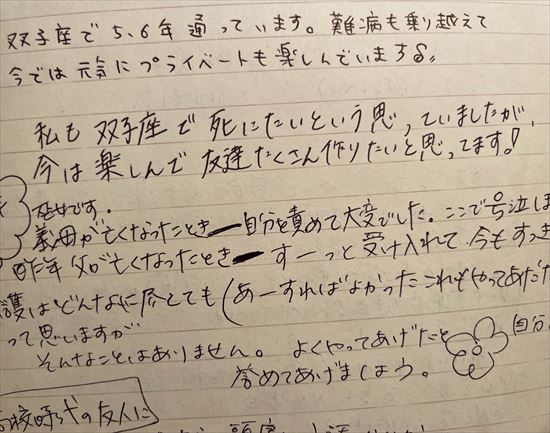 双子座で5、6年通っています。難病も乗り越えて
今では元気にプライベートも楽しんでいまする。
私も双子座で死にたいという思っていましたが、
今は楽しんで友達たくさん作りたいと思ってます!
です。
義母が亡くなったとき ー 自分を責めて大変でした。ここで号泣しま
昨年 父が亡くなったとき ー すーっと受け入れて、今もすっき
護はどんなに尽しても(あーすればよかったこれもやってあげた
って思いますが
そんなことはありません。よくやってあげたと
自分
誉めてあげましょう。
校時代の友人に